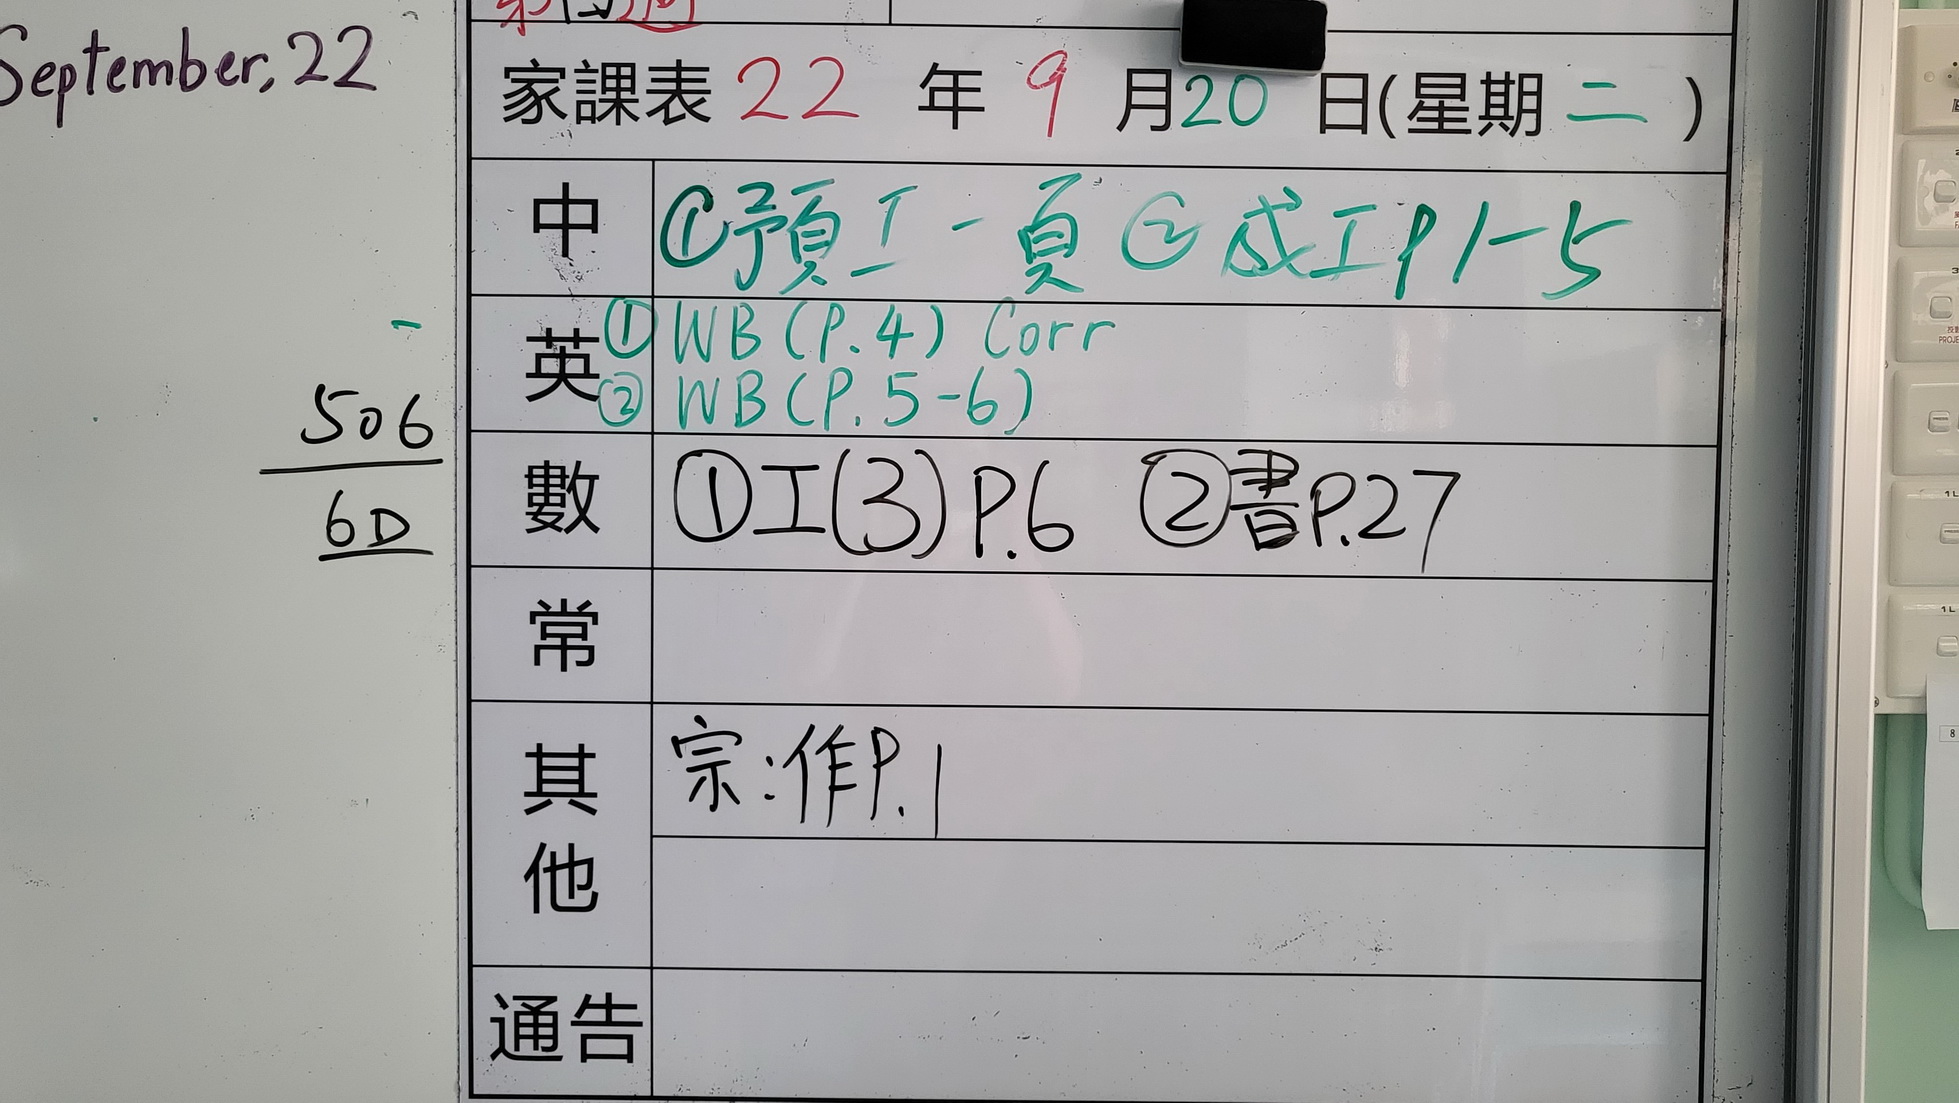 September, 22
家課表 22 年 9 月 20 日(星期 二 )
中 ①預工一頁 ②成工P1-5
英 ① WB (P.4) Corr
② WB (P.5-6)
506
6D
數 ①工(3) P.6 ②書P.27
常
其他 宗:作P.1
通告